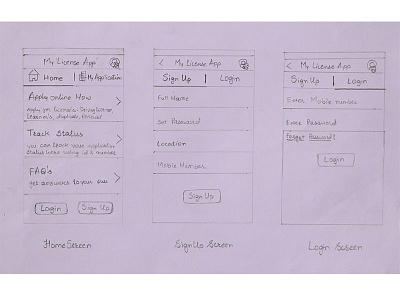 My License App
Home
My Application
Apply online Now
Apply for Licenses - Driving license,
Learner's, duplicate, Renewal
Track Status
you can track your application
Status here using id & number
FAQ's
get answers to your
Login
Sign Up
Home Screen
My License App
Sign Up
Login
Full Name
Set Password
Location
Mobile Number
Sign Up
Sign Up Screen
My License App
Sign Up
Login
Enter Mobile number
Enter Password
Forgot Password?
Login
Login Screen